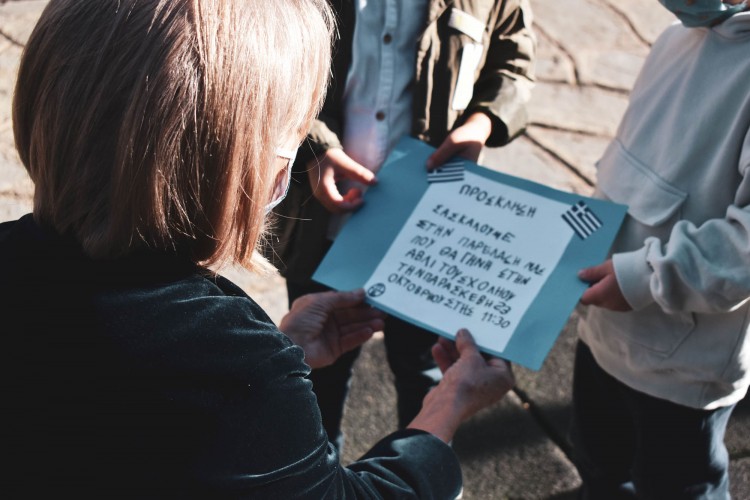 ΠΡΟΣΚΛΗΣΗ
ΣΑΣΚΑΛΟΥΜΕ
ΣΤΗΝ ΠΑΡΕΛΑΣΗ ΜΑΣ
ΠΟΥ ΘΑ ΓΗΝΙ ΣΤΗΝ
ΑΒΛΙ ΤΟΥ ΣΧΟΛΗΟΥ
ΤΗΝ ΠΑΡΑΣΚΕΒΗ 23
ΟΚΤΟΒΡΙΟΥ ΣΤΗΣ 11:30